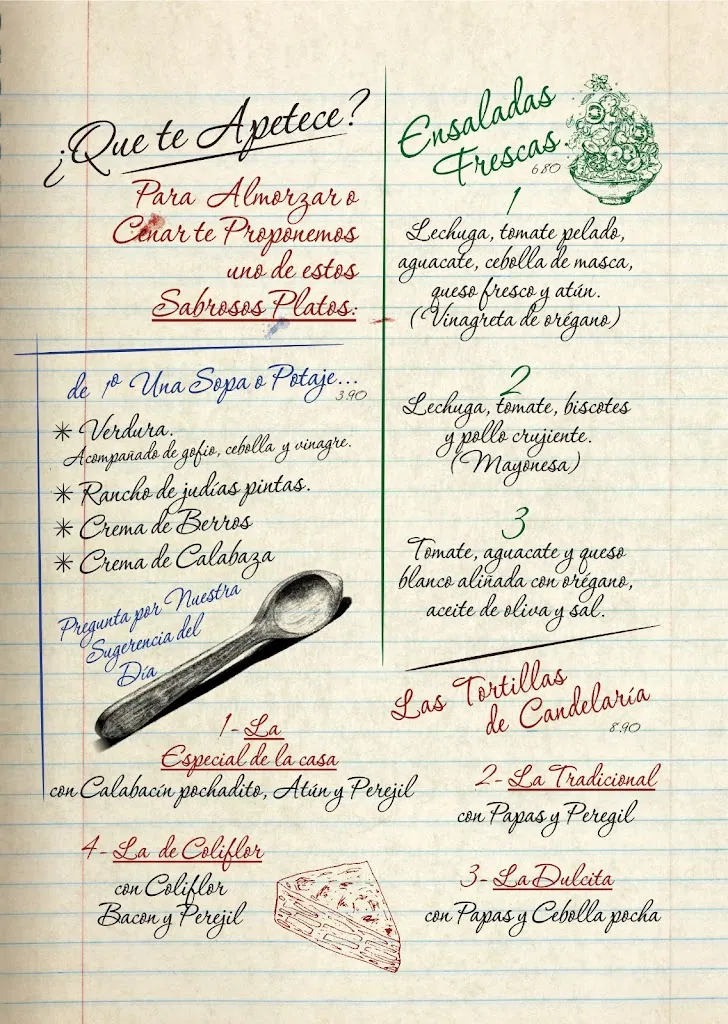 ¿Que te Apetece?
Para Almorzar o
Cenar te Proponemos
uno de estos
Sabrosos Platos:
de 1º Una Sopa o Potaje...
3.90
* Verdura.
Acompañado de gofio, cebolla y vinagre.
* Rancho de judías pintas.
* Crema de Berros
* Crema de Calabaza
Pregunta por Nuestra
Sugerencia del
Día
Ensaladas
Frescas
6.80
1
Lechuga, tomate pelado,
aguacate, cebolla de masca,
queso fresco y atún.
(Vinagreta de orégano)
2
Lechuga, tomate, biscotes
y pollo crujiente.
(Mayonesa)
3
Tomate, aguacate y queso
blanco aliñada con orégano,
aceite de oliva y sal.
Las Tortillas
de Candelaría
8.90
1- La
Especial de la casa
con Calabacín pochadito, Atún y Perejil
2- La Tradicional
con Papas y Peregil
3- La Dulcita
con Papas y Cebolla pocha
4- La de Coliflor
con Coliflor
Bacon y Perejil